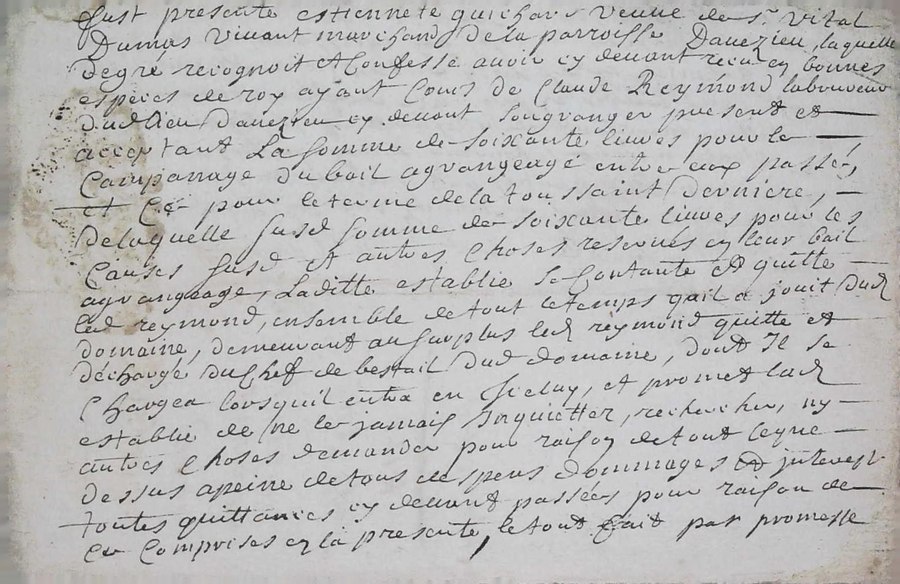 fust presente estiennete guichard veuve de sr. vital
Dumas vivant marchand de la parroisse Davezieu, laquelle
de gré recognoit et Confesse avoir cy devant receu en bonnes
especes de roy ayant Cours de Claude Reymond laboureur
dud lieu Davezieu cy devant son granger present et
acceptant La somme de soixante livres pour le
Campanage du bail agrangeage entre eux passé,
et Ce pour le terme de la toussaint derniere,
de laquelle susd somme de soixante livres pour les
Causes susd et autres Choses reservés en leur bail
agrangeage, Laditte establie se Contante et quitte
led reymond, ensemble de tout le temps quil a jouit dud
domaine, demeurant au surplus led reymond quitte et
déchargé du Chef de bestail dud domaine, dont Il se
Chargea lorsquil entra en Iceluy, et promet lad
establie de ne le jamais Inquietter, rechercher, ny
autres Choses demander pour raison de tout le que
dessus a peine de tous despens dommages et interest
toutes quittances cy devant passées pour raison de
Ce Comprises en la presente, le tout fait par promesse